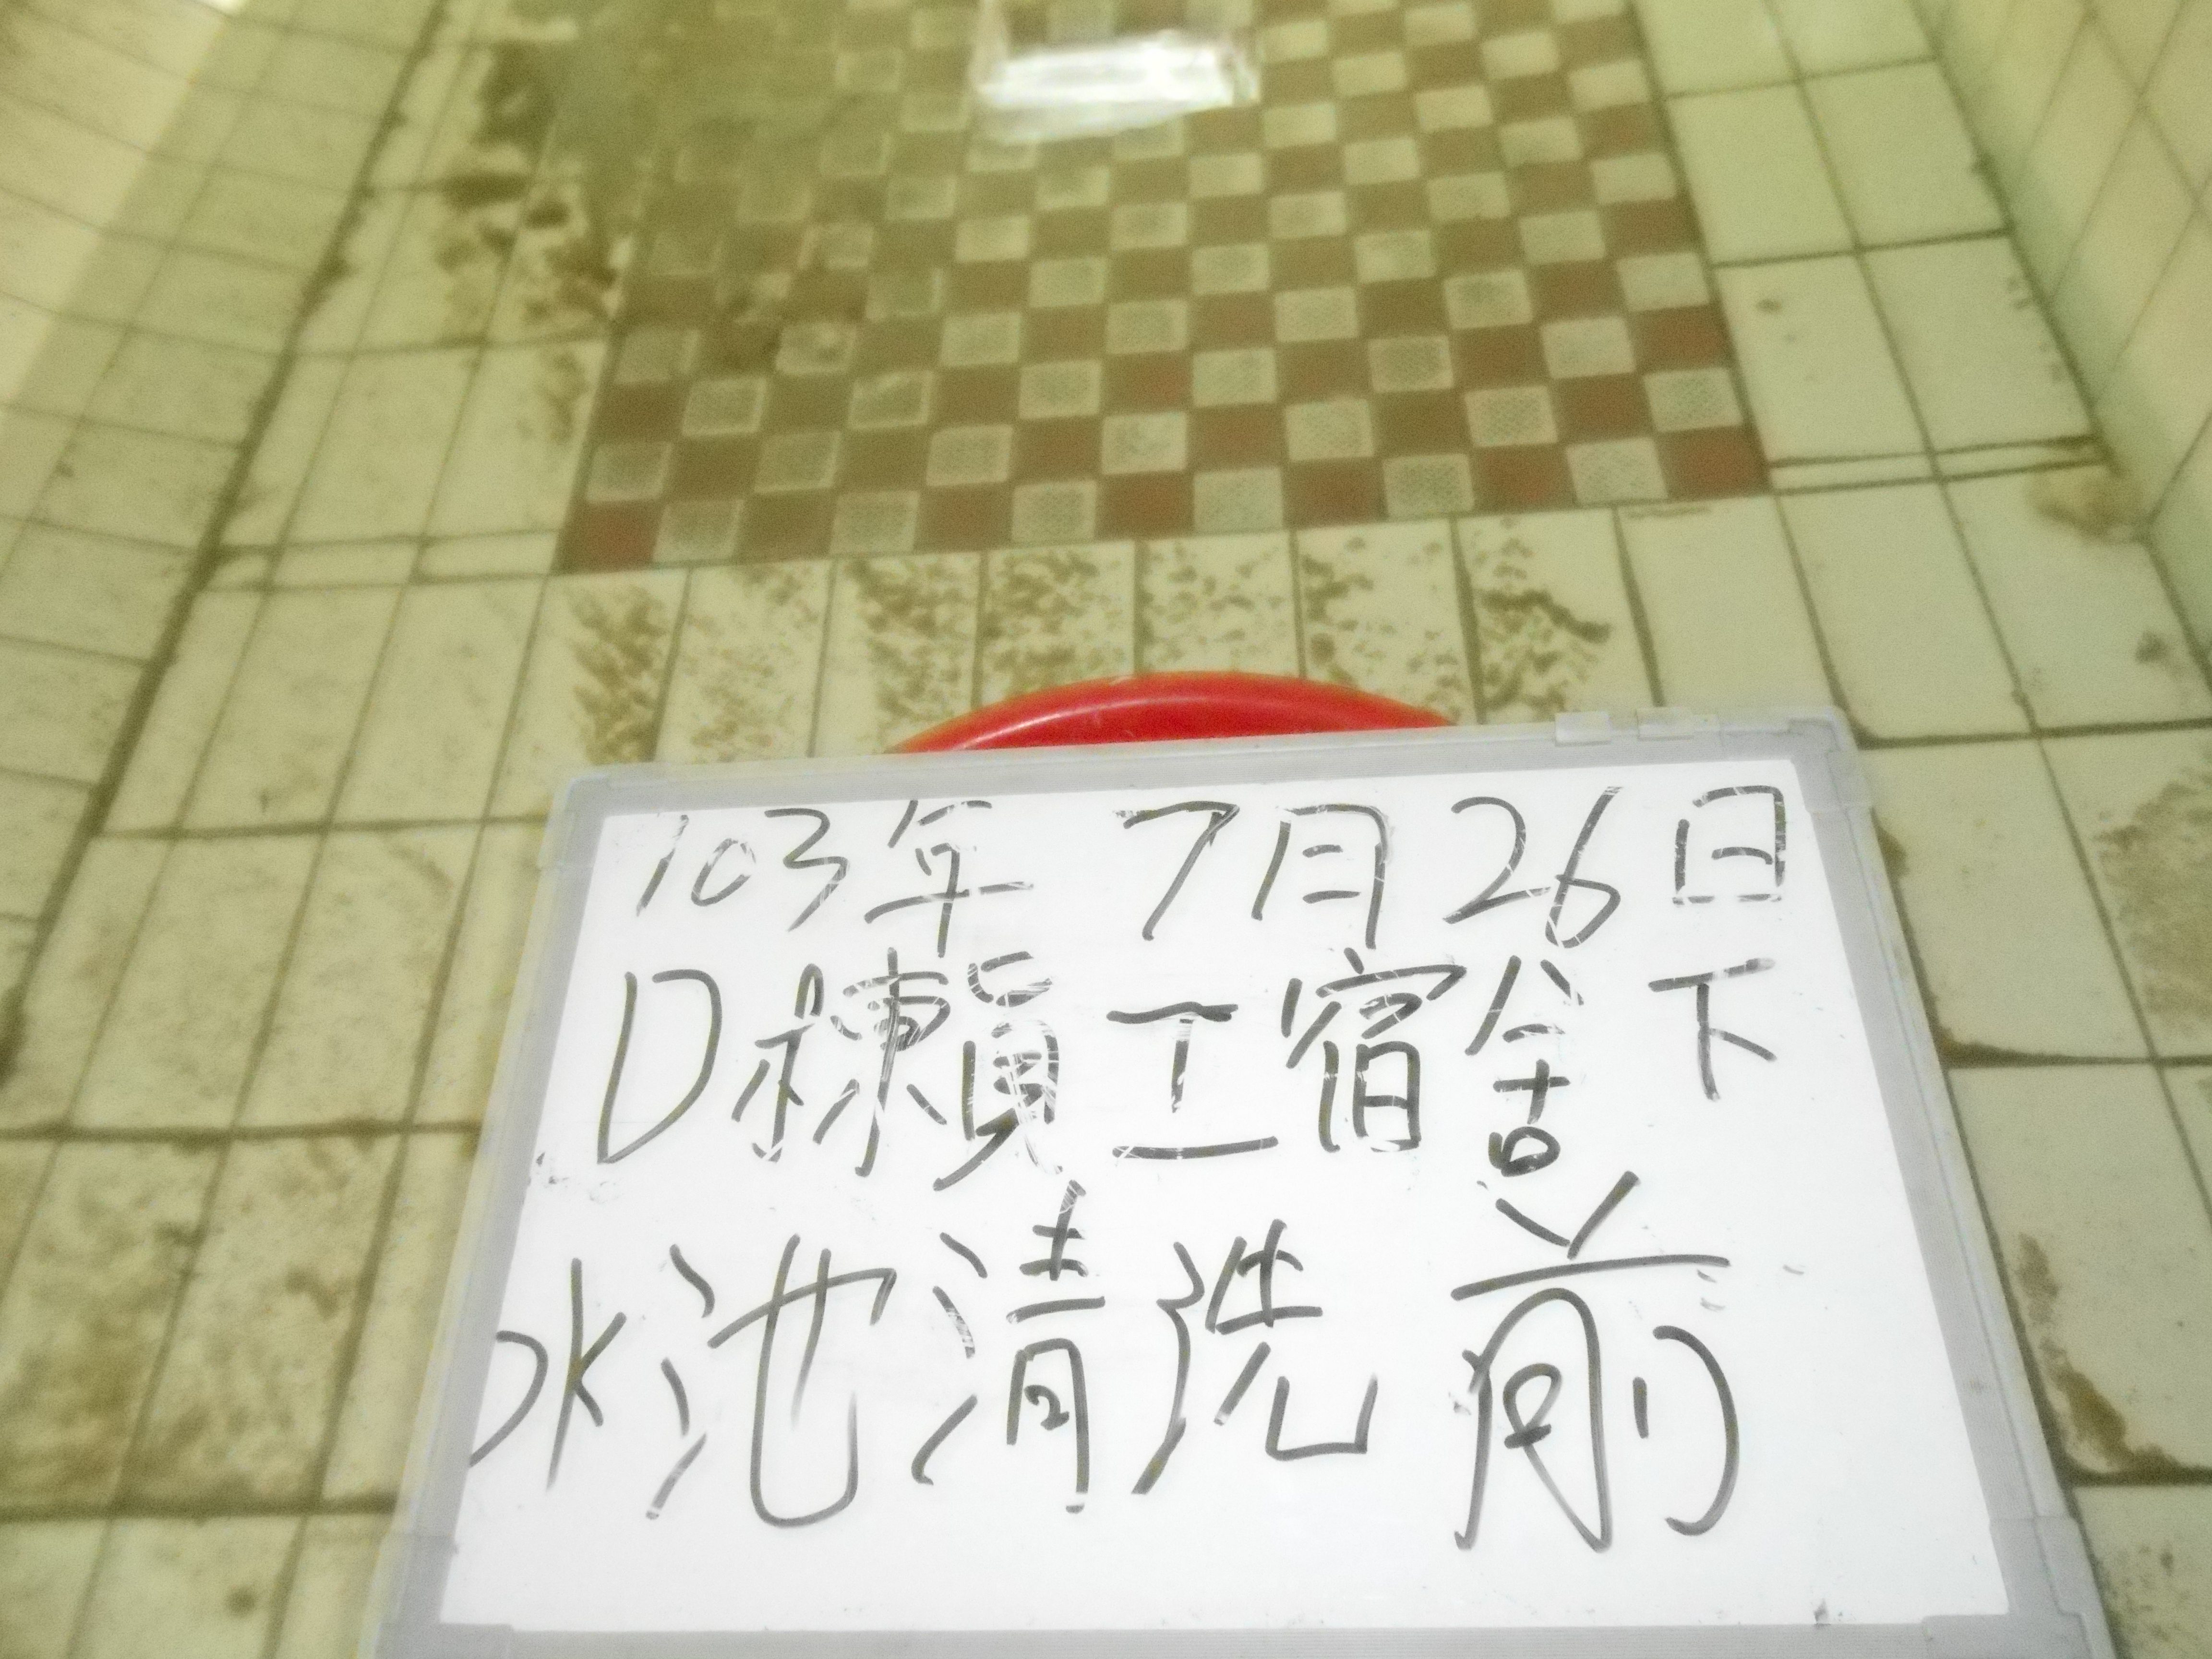 103年 7月26日
D棟員工宿舍下
水池清洗前